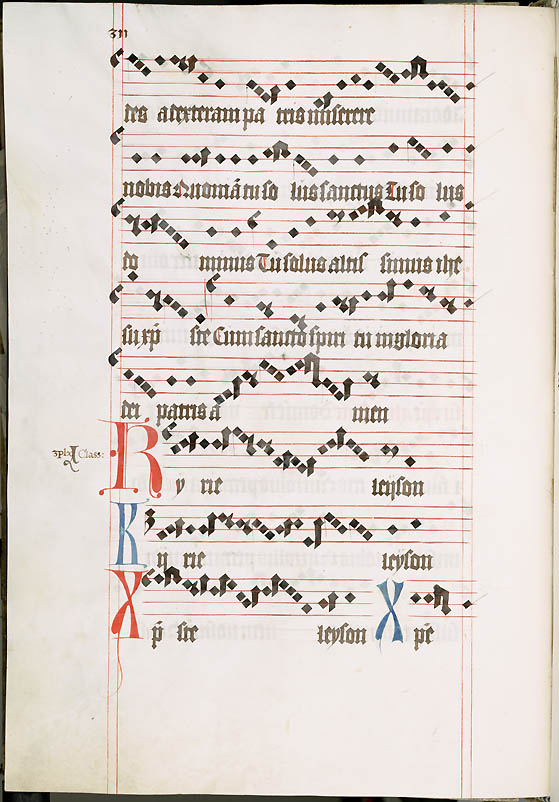 des ad exteram pa tris miserere
nobis Quoniā tu so lus sanctus Tu so lus
do minus Tu solus altis simus ihe
su xp̄ ste Cum sancto spiri tu in gloria
dei patris a men
3plx Class:
K y rie leyson
K y rie leyson
X p̄ ste leyson X pē